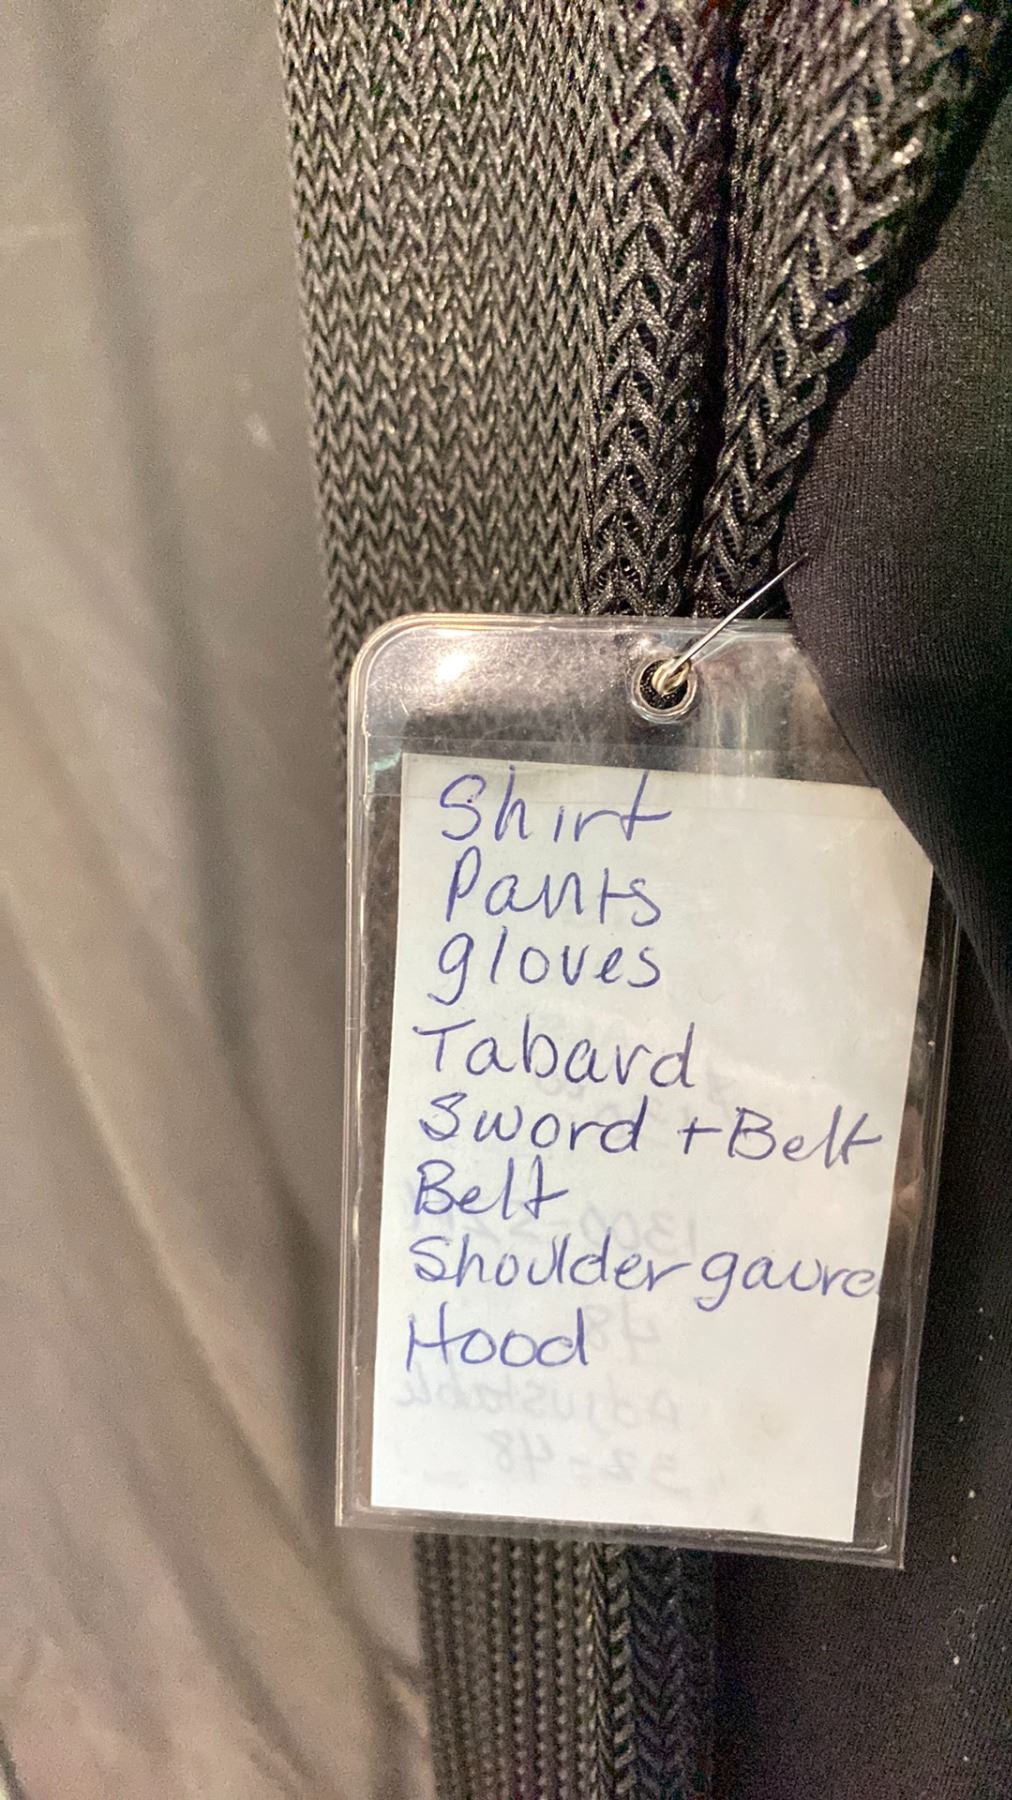 Shirt
Pants
gloves
Tabard
Sword + Belt
Belt
Shoulder gaurd
Hood